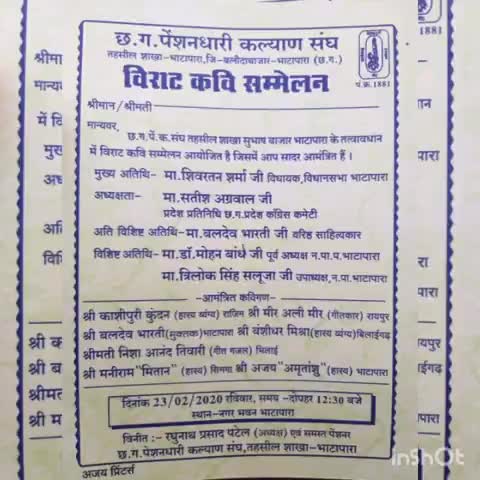 छ.ग.पेंशनधारी कल्याण संघ
तहसील शाखा-भाटापारा,जि-बलौदाबाजार-भाटापारा (छ.ग.)
विराट कवि सम्मेलन
पं.क्र.1881
श्रीमान/श्रीमती
मान्यवर,
छ.ग.पें.क.संघ तहसील शाखा सुभाष बाजार भाटापारा के तत्वावधान
में विराट कवि सम्मेलन आयोजित है जिसमें आप सादर आमंत्रित हैं ।
मुख्य अतिथि- मा.शिवरतन शर्मा जी विधायक,विधानसभा भाटापारा
अध्यक्षता- मा.सतीश अग्रवाल जी
प्रदेश प्रतिनिधि छ.ग.प्रदेश काँग्रेस कमेटी
अति विशिष्ट अतिथि- मा.बलदेव भारती जी वरिष्ठ साहित्यकार
विशिष्ट अतिथि- मा.डॉ.मोहन बांधे जी पूर्व अध्यक्ष न.पा.प.भाटापारा
मा.त्रिलोक सिंह सलूजा जी उपाध्यक्ष,न.पा.भाटापारा
-आमंत्रित कविगण-
श्री काशीपुरी कुंदन (हास्य व्यंग्य) राजिम श्री मीर अली मीर (गीतकार) रायपुर
श्री बलदेव भारती(मुक्तक)भाटापारा श्री बंशीधर मिश्रा(हास्य व्यंग्य)बिलाईगढ़
श्रीमती निशा आनंद तिवारी (गीत गजल) भिलाई
श्री मनीराम "मितान" (हास्य) सिमगा श्री अजय "अमृतांशु" (हास्य) भाटापारा
दिनांक 23/02/2020 रविवार, समय -दोपहर 12:30 बजे
स्थान-नगर भवन भाटापारा
विनीत :- रघुनाथ प्रसाद पटेल (अध्यक्ष) एवं समस्त पेंशनर
छ.ग.पेंशनधारी कल्याण संघ,तहसील शाखा-भाटापारा
अजय प्रिंटर्स
InShOt